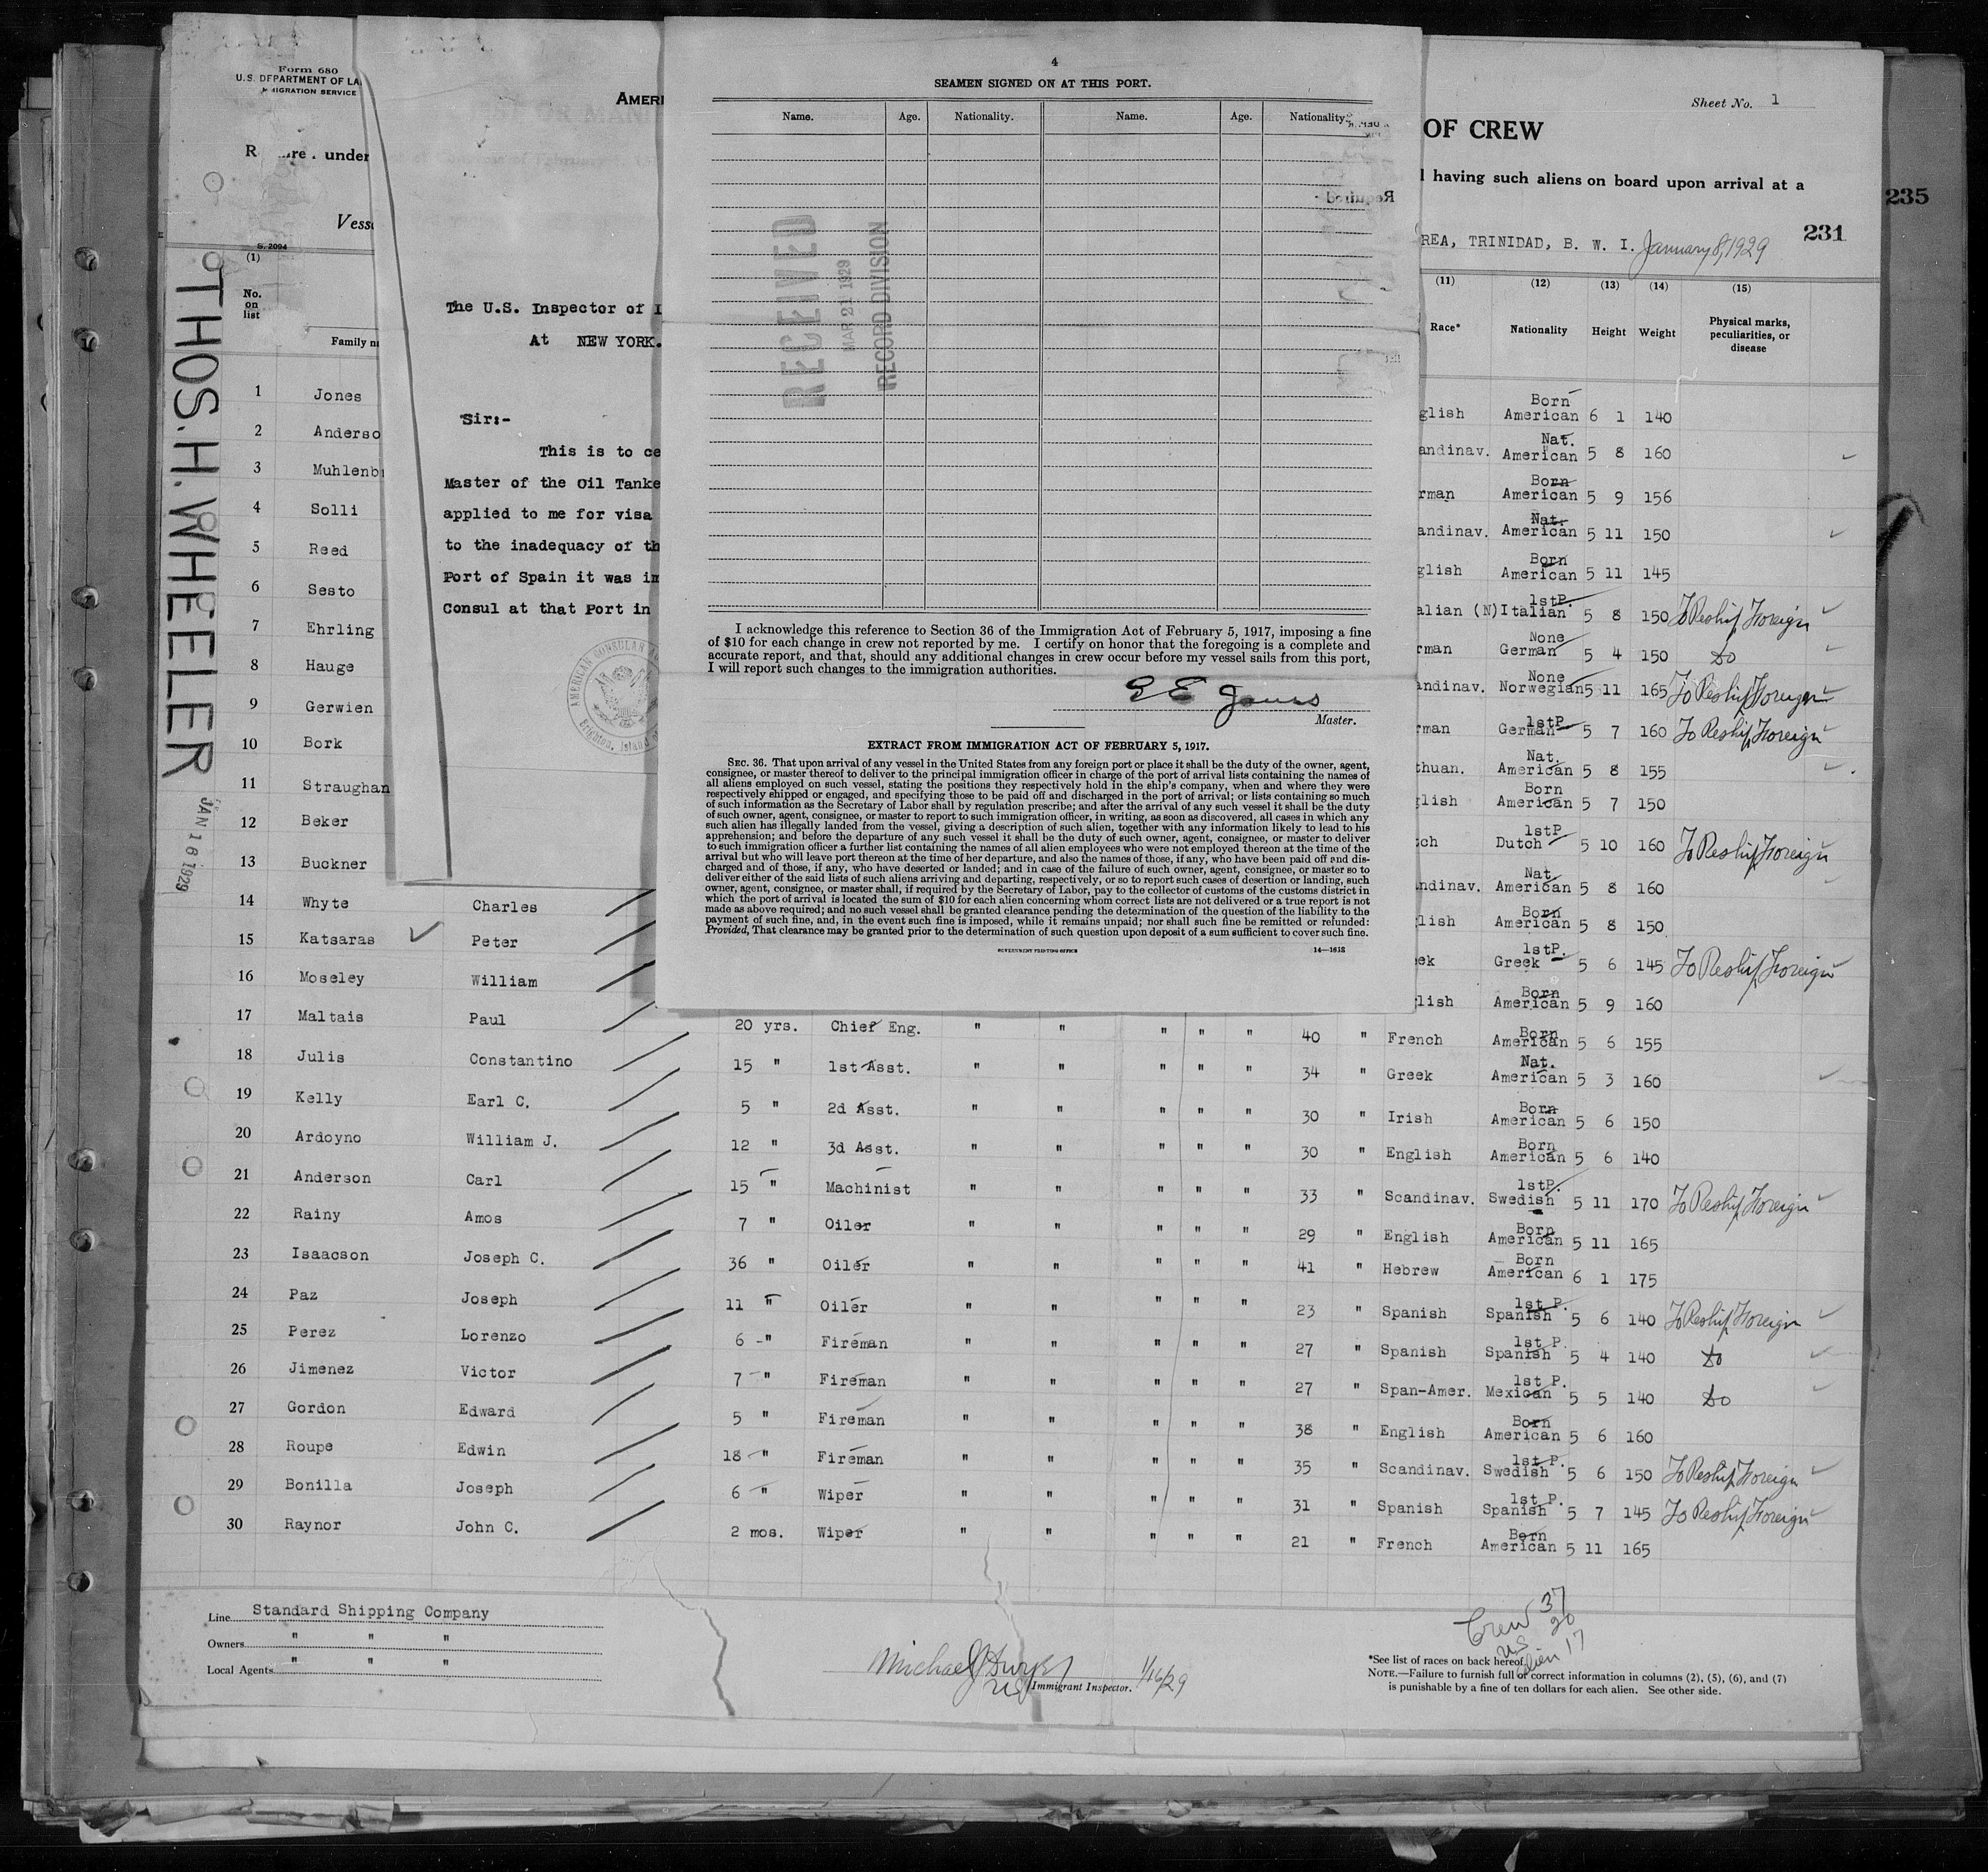 Form 680
U.S. DEPARTMENT OF LA
IMMIGRATION SERVICE
under
Vess
S. 2094
THOS. H. WHEELER
JAN 16 1929
AMERI
The U.S. Inspector of I
At NEW YORK.
Sir:-
This is to ce
Master of the Oil Tanke
applied to me for visa
to the inadequacy of th
Port of Spain it was im
Consul at that Port in
AMERICAN CONSULAR A
Brighton, Island
4
SEAMEN SIGNED ON AT THIS PORT.
Name. Age. Nationality. Name. Age. Nationality.
RECEIVED
MAR 21 1929
RECORD DIVISION
Required
I acknowledge this reference to Section 36 of the Immigration Act of February 5, 1917, imposing a fine
of $10 for each change in crew not reported by me. I certify on honor that the foregoing is a complete and
accurate report, and that, should any additional changes in crew occur before my vessel sails from this port,
I will report such changes to the immigration authorities.
G E Jones
Master.
EXTRACT FROM IMMIGRATION ACT OF FEBRUARY 5, 1917.
SEC. 36. That upon arrival of any vessel in the United States from any foreign port or place it shall be the duty of the owner, agent,
consignee, or master thereof to deliver to the principal immigration officer in charge of the port of arrival lists containing the names of
all aliens employed on such vessel, stating the positions they respectively hold in the ship's company, when and where they were
respectively shipped or engaged, and specifying those to be paid off and discharged in the port of arrival; or lists containing so much
of such information as the Secretary of Labor shall by regulation prescribe; and after the arrival of any such vessel it shall be the duty
of such owner, agent, consignee, or master to report to such immigration officer, in writing, as soon as discovered, all cases in which any
such alien has illegally landed from the vessel, giving a description of such alien, together with any information likely to lead to his
apprehension; and before the departure of any such vessel it shall be the duty of such owner, agent, consignee, or master to deliver
to such immigration officer a further list containing the names of all alien employees who were not employed thereon at the time of the
arrival but who will leave port thereon at the time of her departure, and also the names of those, if any, who have been paid off and dis-
charged and of those, if any, who have deserted or landed; and in case of the failure of such owner, agent, consignee, or master so to
deliver either of the said lists of such aliens arriving and departing, respectively, or so to report such cases of desertion or landing, such
owner, agent, consignee, or master shall, if required by the Secretary of Labor, pay to the collector of customs of the customs district in
which the port of arrival is located the sum of $10 for each alien concerning whom correct lists are not delivered or a true report is not
made as above required; and no such vessel shall be granted clearance pending the determination of the question of the liability to the
payment of such fine, and, in the event such fine is imposed, while it remains unpaid; nor shall such fine be remitted or refunded:
Provided, That clearance may be granted prior to the determination of such question upon deposit of a sum sufficient to cover such fine.
GOVERNMENT PRINTING OFFICE 14—1612
Sheet No. 1
OF CREW
l having such aliens on board upon arrival at a
235
231
REA, TRINIDAD, B. W. I. January 8, 1929
(1) (11) (12) (13) (14) (15)
No. on list Family n Race* Nationality Height Weight Physical marks, peculiarities, or disease
1 Jones glish Born American 6 1 140
2 Anderso andinav. Nat. American 5 8 160
3 Muhlenb rman Born American 5 9 156
4 Solli andinav. Nat. American 5 11 150
5 Reed glish Born American 5 11 145
6 Sesto alian (N) 1stP. Italian 5 8 150 To Reship Foreign
7 Ehrling rman None German 5 4 150 do
8 Hauge andinav. None Norwegian 5 11 165 To Reship Foreign
9 Gerwien rman 1stP. German 5 7 160 To Reship Foreign
10 Bork thuan. Nat. American 5 8 155
11 Straughan glish Born American 5 7 150
12 Beker tch 1stP. Dutch 5 10 160 To Reship Foreign
13 Buckner ndinav. Nat. American 5 8 160
14 Whyte Charles lish Born American 5 8 150
15 Katsaras Peter ek 1stP. Greek 5 6 145 To Reship Foreign
16 Moseley William lish Born American 5 9 160
17 Maltais Paul 20 yrs. Chief Eng. " " " " " 40 " French Born American 5 6 155
18 Julis Constantino 15 " 1st Asst. " " " " " 34 " Greek Nat. American 5 3 160
19 Kelly Earl C. 5 " 2d Asst. " " " " " 30 " Irish Born American 5 6 150
20 Ardoyno William J. 12 " 3d Asst. " " " " " 30 " English Born American 5 6 140
21 Anderson Carl 15 " Machinist " " " " " 33 " Scandinav. 1stP. Swedish 5 11 170 To Reship Foreign
22 Rainy Amos 7 " Oiler " " " " " 29 " English Born American 5 11 165
23 Isaacson Joseph C. 36 " Oiler " " " " " 41 " Hebrew Born American 6 1 175
24 Paz Joseph 11 " Oiler " " " " " 23 " Spanish 1st P. Spanish 5 6 140 To Reship Foreign
25 Perez Lorenzo 6 " Fireman " " " " " 27 " Spanish 1st P. Spanish 5 4 140 do
26 Jimenez Victor 7 " Fireman " " " " " 27 " Span-Amer. 1st P. Mexican 5 5 140 do
27 Gordon Edward 5 " Fireman " " " " " 38 " English Born American 5 6 160
28 Roupe Edwin 18 " Fireman " " " " " 35 " Scandinav. 1st P. Swedish 5 6 150 To Reship Foreign
29 Bonilla Joseph 6 " Wiper " " " " " 31 " Spanish 1st P. Spanish 5 7 145 To Reship Foreign
30 Raynor John C. 2 mos. Wiper " " " " " 21 " French Born American 5 11 165
Line Standard Shipping Company
Owners " " "
Local Agents " " "
Michael J Dwyer
Immigrant Inspector. 1/16/29
Crew 37
US 20
Alien 17
*See list of races on back hereof.
NOTE.—Failure to furnish full or correct information in columns (2), (5), (6), and (7)
is punishable by a fine of ten dollars for each alien. See other side.